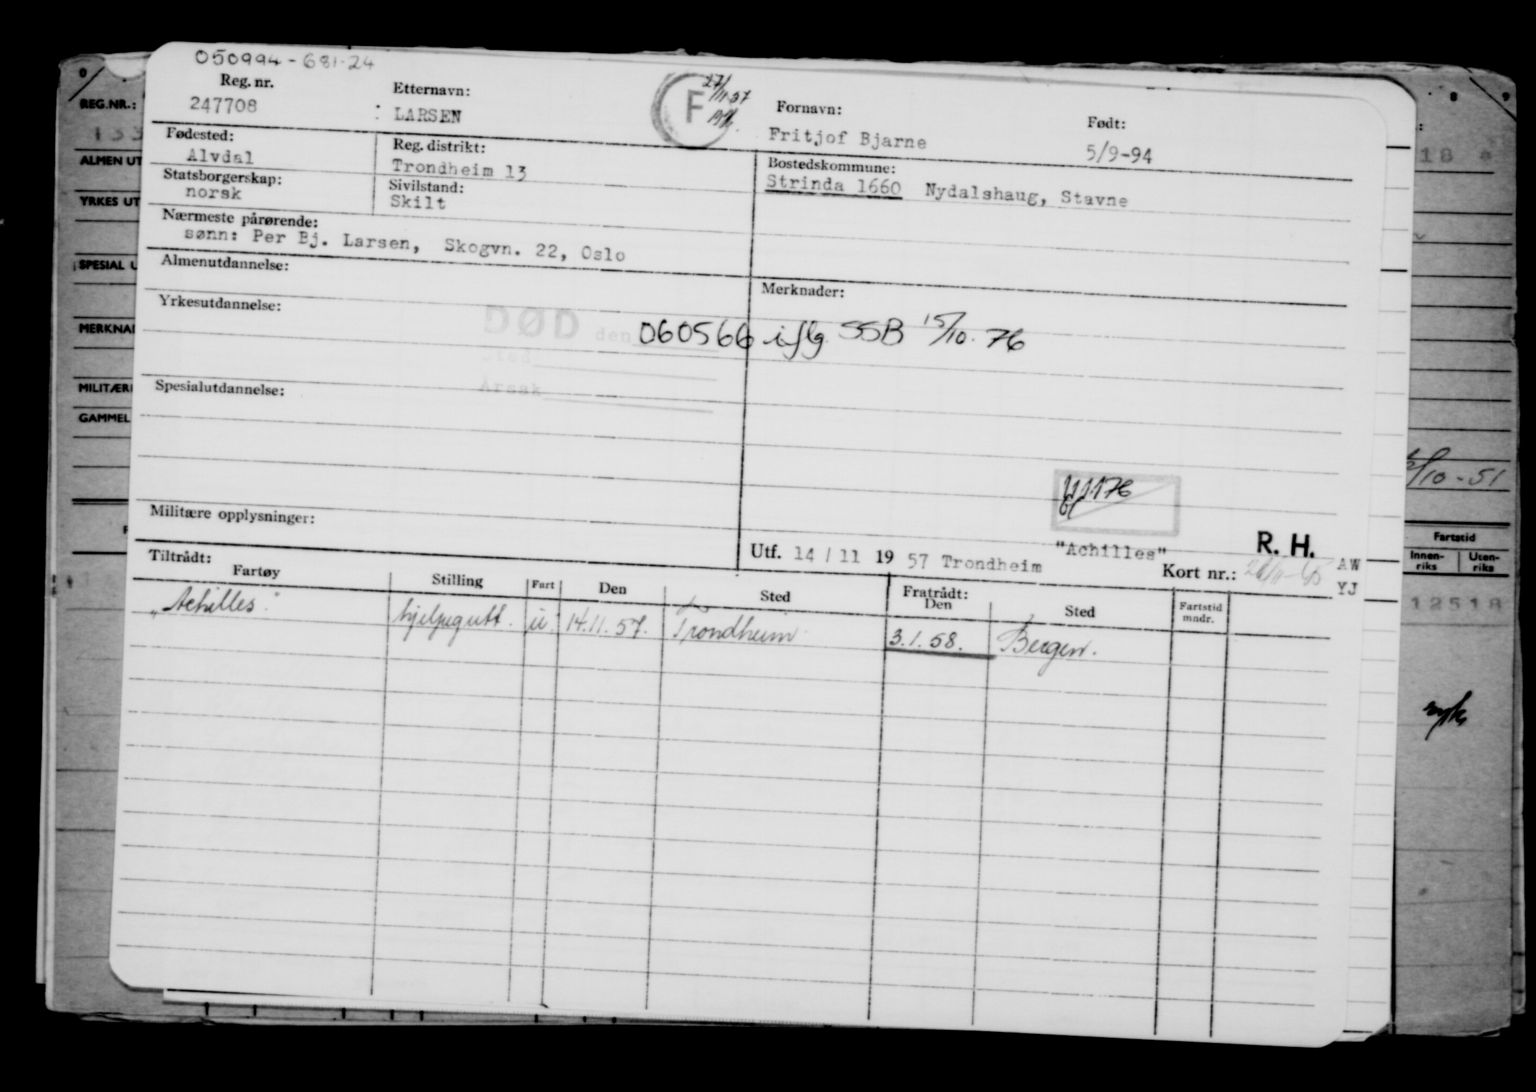 050994-681.24
Reg. nr. Etternavn: F 27/11-57 Fornavn: Født:
247708 : LARSEN Fritjof Bjarne 5/9-94
Fødested: Reg. distrikt: Bostedskommune:
Alvdal Trondheim 13 Strinda 1660 Nydalshaug, Stavne
Statsborgerskap: Sivilstand:
norsk Skilt
Nærmeste pårørende:
sønn: Per Bj. Larsen, Skogvn. 22, Oslo
Almenutdannelse: Merknader:
Yrkesutdannelse:
DØD den 060566 iflg. SSB 15/10. 76
Sted
Årsak
Spesialutdannelse:
Militære opplysninger:
Utf. 14/11 19 57 Trondheim "Achilles" R. H.
Kort nr.:
Tiltrådt: Fratrådt:
Fartøy Stilling Fart Den Sted Den Sted Fartstid mndr.
"Achilles". hjelpegutt. u. 14.11.57. Trondheim 3.1.58. Bergen.
REG.NR.:
133
ALMEN UT
YRKES UT
SPESIAL U
MERKNA
MILITÆR
GAMMEL
8 9
18
/10-51
Fartstid
Innen-riks Uten-riks
AW
YJ
12518